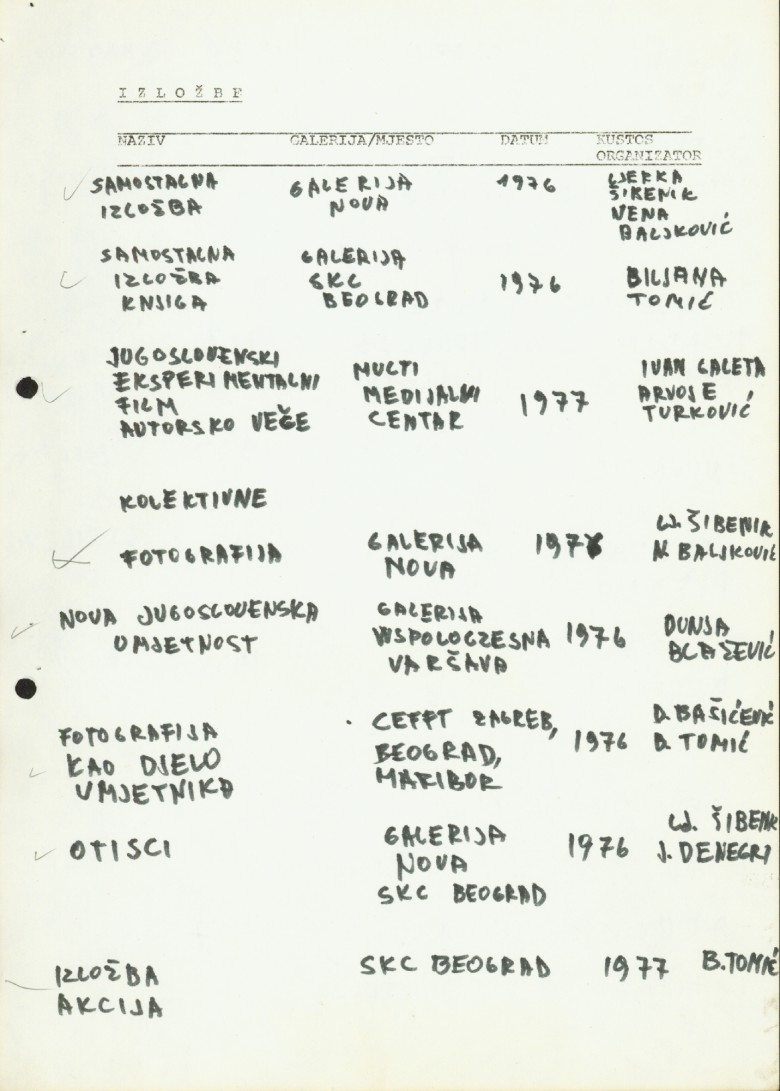 IZLOŽBE
NAZIV GALERIJA/MJESTO DATUM KUSTOS
ORGANIZATOR
SAMOSTALNA GALERIJA 1976 LJERKA
IZLOŽBA NOVA ŠIBENIK
VENA
BALJKOVIĆ
SAMOSTALNA GALERIJA
IZLOŽBA SKC 1976 BILJANA
KNJIGA BEOGRAD TOMIĆ
JUGOSLOVENSKI MULTI IVAN GALETA
EKSPERIMENTALNI MEDIJALNI 1977 HRVOJE
FILM CENTAR TURKOVIĆ
AUTORSKO VEČE
KOLEKTIVNE
FOTOGRAFIJA GALERIJA LJ. ŠIBENIK
NOVA N. BALJKOVIĆ
NOVA JUGOSLOVENSKA GALERIJA 1976 DUNJA
UMJETNOST WSPOLOCZESNA BLAŽEVIĆ
VARŠAVA
FOTOGRAFIJA CEFFT ZAGREB, 1976 D. BAŠIČEVIĆ
KAO DJELO BEOGRAD, B. TOMIĆ
UMJETNIKA MARIBOR
OTISCI GALERIJA 1976 LJ. ŠIBENIK
NOVA J. DENEGRI
SKC BEOGRAD
IZLOŽBA SKC BEOGRAD 1977 B. TOMIĆ
AKCIJA